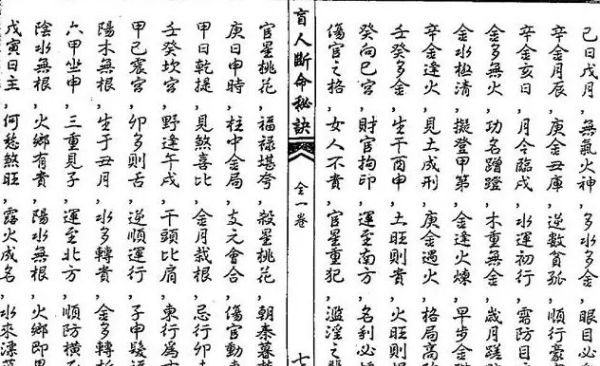 己日戊月,無氣火神,多水多金,眼目必
辛金月辰,庚金丑庫,逆數貧孤,順行豪
辛金亥日,月令臨戌,水運初行,需防目
金多無火,功名蹭蹬,木重無金,歲月蹉
金水極清,擬登甲第,金逢火煉,早步金
辛金逢火,見土成刑,庚金遇火,格局高
壬癸多金,生于酉申,土旺則貴,火旺則
癸向巳宮,財官拘印,運至南方,名利必
傷官之格,女人不貴,官星重犯,滥淫之
盲人斷命秘訣 全一卷 七
官星桃花,福禄堪夸,殺星桃花,朝秦暮
庚日申時,柱中金局,支元會合,傷官動
甲日乾提,見煞喜比,金月裁根,忌行卯
壬癸坎宮,野逢午戌,干頭比肩,東行為
甲己震宮,卯多則舌,逆順運行,子申發
陽木無根,生于丑月,水多轉貴,金多轉
六甲坐申,三重見子,運至北方,順防橫
陰水無根,火鄉有貴,陽水無根,火鄉即
戊寅日主,何愁煞旺,露火成名,水來漂